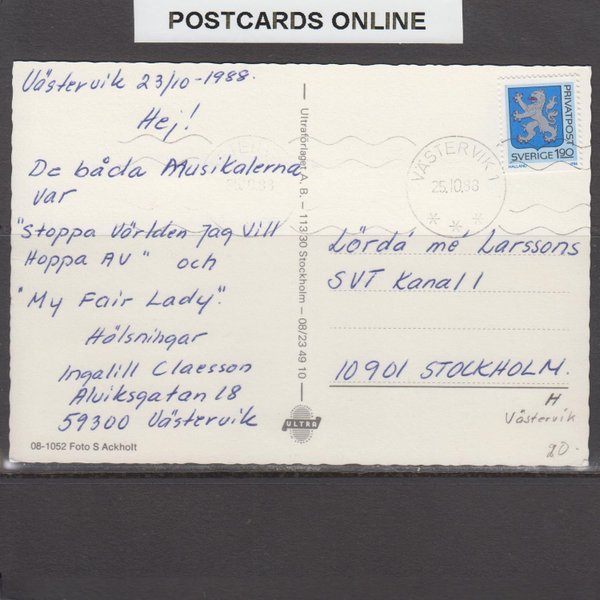 POSTCARDS ONLINE
Västervik 23/10-1988.
Hej!
De båda Musikalerna
var
"Stoppa Världen Jag Vill
Hoppa AV" och
"My Fair Lady".
Hälsningar
Ingalill Claesson
Älviksgatan 18
59300 Västervik
08-1052 Foto S Ackholt
Ultraförlaget A. B. – 113 30 Stockholm – 08/23 49 10
ULTRA
PRIVATPOST
SVERIGE 1.90
HALLAND
VÄSTERVIK 1
25.10.88
Lörda' me' Larssons
SVT Kanal 1
10901 STOCKHOLM.
H
Västervik
20.-